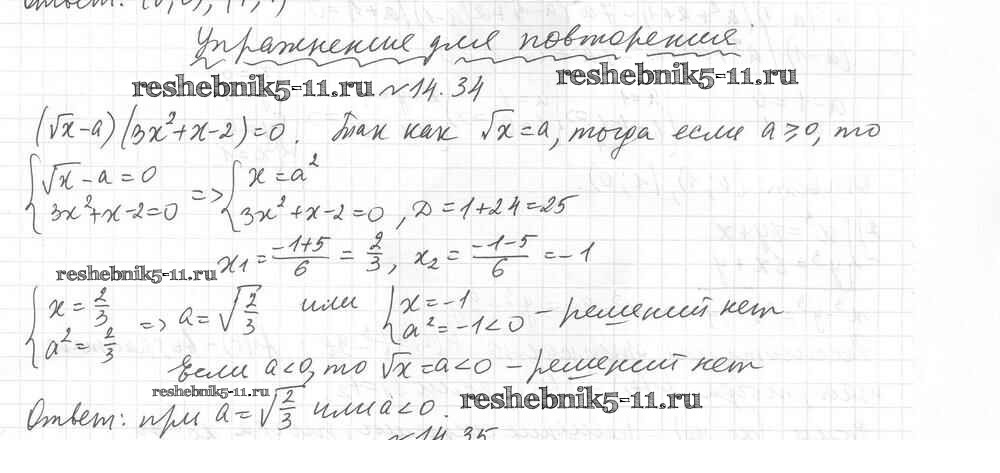 Ответ: (0;0), (1;1)
Упражнение для повторения
reshebnik5-11.ru №14.34 reshebnik5-11.ru
(√x-a)(3x²+x-2)=0. Так как √x=a, тогда если a≥0, то
{√x-a=0 => {x=a²
3x²+x-2=0 3x²+x-2=0, D=1+24=25
reshebnik5-11.ru x₁=(-1+5)/6=2/3, x₂=(-1-5)/6=-1
{x=2/3 => a=√(2/3) или {x=-1 - решений нет
a²=2/3 a²=-1<0
Если a<0, то √x=a<0 - решений нет
reshebnik5-11.ru
Ответ: при a=√(2/3) или a<0. reshebnik5-11.ru
№14.35